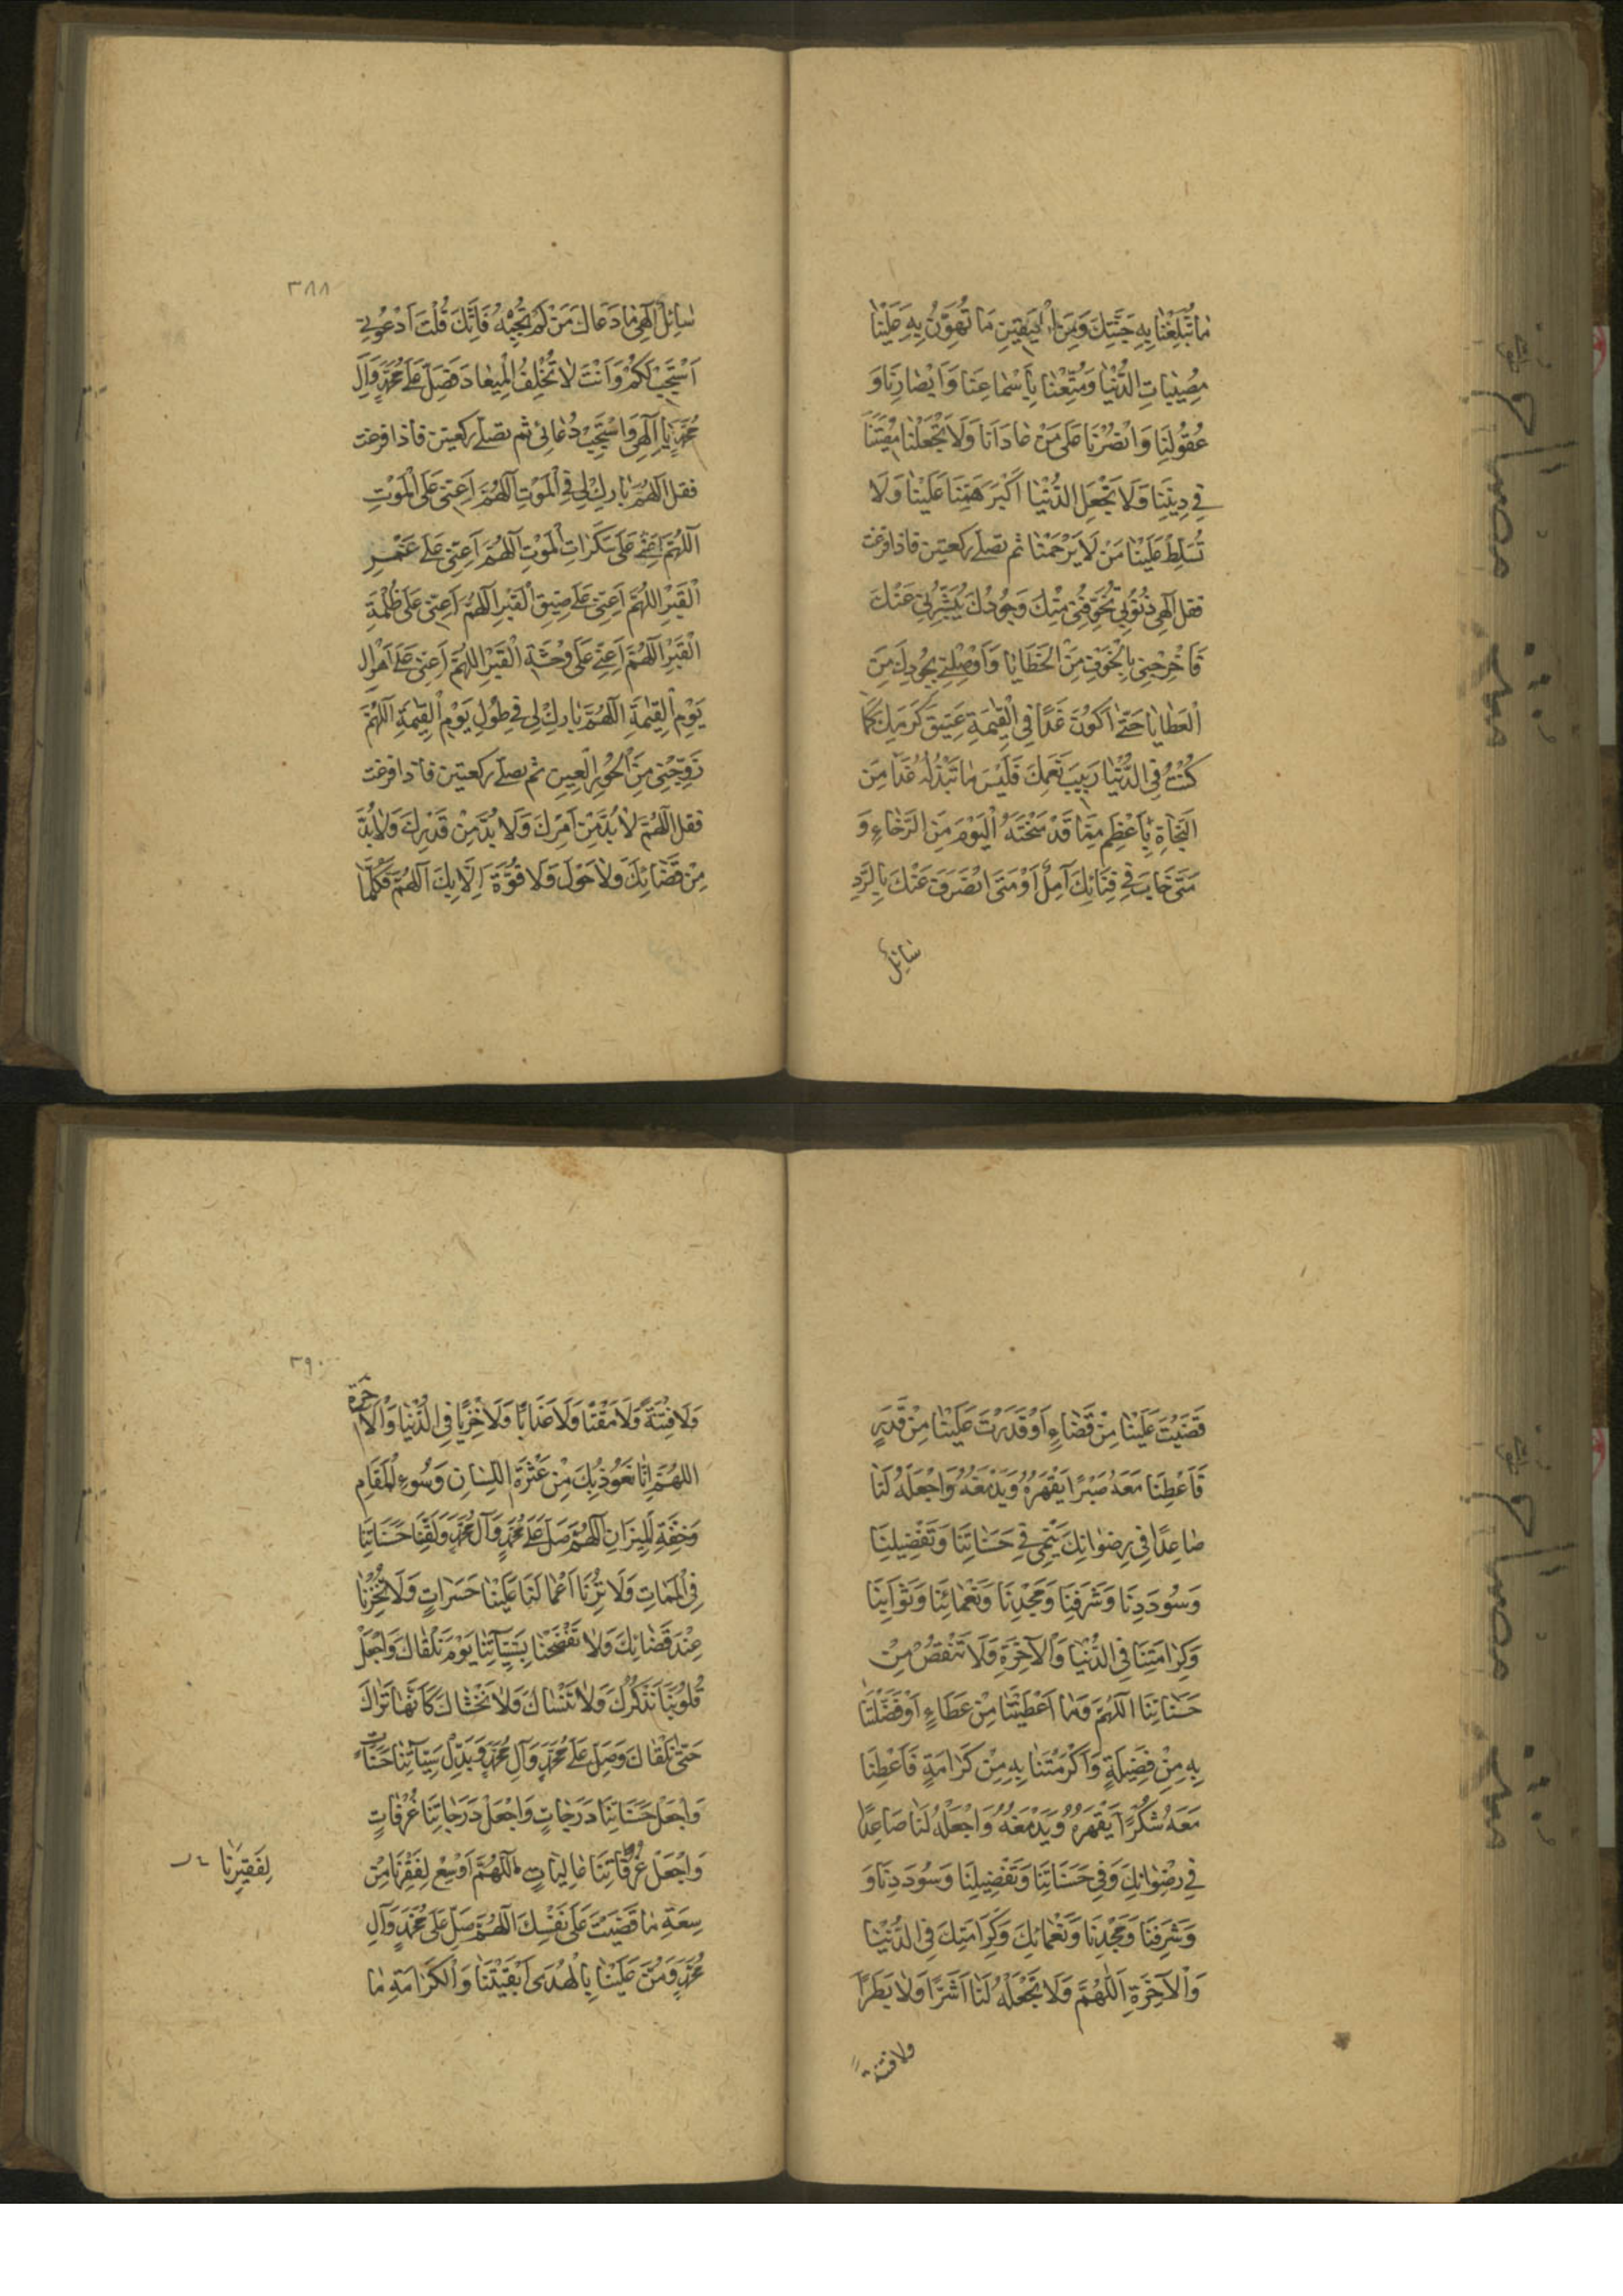 مٰا تُبَلِّغُنٰا بِهِ جَنَّتِكَ وَمِنَ الْيَقينِ مَا تُهَوِّنُ بِهِ عَلَيْنٰا
مُصِيبٰاتِ الدُّنْيٰا وَمَتِّعْنٰا بِأَسْمٰاعِنٰا وَأَبْصٰارِنٰا وَ
عُقُولِنٰا وَانْصُرْنٰا عَلىٰ مَنْ عٰادٰانٰا وَلَا تَجْعَلْ مُصِيبَتَنٰا
في دِينِنٰا وَلَا تَجْعَلِ الدُّنْيٰا أَكْبَرَ هَمِّنٰا عَلَيْنٰا وَلَا
تُسَلِّطْ عَلَيْنٰا مَنْ لَا يَرْحَمُنٰا ثم تصلّے ركعتين فاذا فرغت
فقل اِلٰهي ذُنُوبِي تُخَوِّفُنِي مِنْكَ وَجُودُكَ يُبَشِّرُنِي عَنْكَ
فَأَخْرِجْنِي بِالْخَوْفِ مِنَ الْخَطَايٰا وَأَوْصِلْنِي بِجُودِكَ مِنَ
الْعَطٰايٰا حَتّٰى أَكُونَ غَدًا فِي الْقِيٰمَةِ عَتِيقَ كَرَمِكَ كَمٰا
كُنْتُ فِي الدُّنْيٰا رَبِيبَ نِعَمِكَ فَلَيْسَ مٰا تَبْذُلُهُ غَدًا مِنَ
النَّجٰاةِ بِأَعْظَمَ مِمّٰا قَدْ مَنَحْتَهُ الْيَوْمَ مِنَ الرَّخٰاءِ وَ
مَتىٰ خٰابَ في فِنٰائِكَ آمِلٌ أَوْ مَتىٰ انْصَرَفَ عَنْكَ بِالرَّدِّ
سٰائِلٌ
٣٨٨
سٰائِلٌ اِلٰهِي مٰا دَعٰاكَ مَنْ لَمْ تُجِبْهُ فَاِنَّكَ قُلْتَ اُدْعُونِي
اَسْتَجِبْ لَكُمْ وَاَنْتَ لٰا تُخْلِفُ الْمِيعٰادَ فَصَلِّ عَلىٰ مُحَمَّدٍ وَآلِ
مُحَمَّدٍ يٰا اِلٰهِي وَاسْتَجِبْ دُعٰائِي ثم تصلّے ركعتين فاذا فرغت
فقل اَللّٰهُمَّ بٰارِكْ لِي فِي الْمَوْتِ اَللّٰهُمَّ اَعِنّي عَلَى الْمَوْتِ
اَللّٰهُمَّ اَعِنّي عَلىٰ سَكَرٰاتِ الْمَوْتِ اَللّٰهُمَّ اَعِنّي عَلىٰ غَمِّ
الْقَبْرِ اَللّٰهُمَّ اَعِنّي عَلىٰ ضِيقِ الْقَبْرِ اَللّٰهُمَّ اَعِنّي عَلىٰ ظُلْمَةِ
الْقَبْرِ اَللّٰهُمَّ اَعِنّي عَلىٰ وَحْشَةِ الْقَبْرِ اَللّٰهُمَّ اَعِنّي عَلىٰ اَهْوٰالِ
يَوْمِ الْقِيٰمَةِ اَللّٰهُمَّ بٰارِكْ لِي في طُولِ يَوْمِ الْقِيٰمَةِ اَللّٰهُمَّ
زَوِّجْنِي مِنَ الْحُورِ الْعِينِ ثم تصلّے ركعتين فاذا فرغت
فقل اَللّٰهُمَّ لٰا بُدَّ مِنْ اَمْرِكَ وَلٰا بُدَّ مِنْ قَدَرِكَ وَلٰا بُدَّ
مِنْ قَضٰائِكَ وَلٰا حَوْلَ وَلَا قُوَّةَ اِلّٰا بِكَ اَللّٰهُمَّ فَكُلَّمٰا
قَضَيْتَ عَلَيْنٰا مِنْ قَضٰاءٍ اَوْ قَدَّرْتَ عَلَيْنٰا مِنْ قَدَرٍ
فَاَعْطِنٰا مَعَهُ صَبْرًا يَقْهَرُهُ وَيَدْمَغُهُ وَاجْعَلْهُ لَنٰا
صٰاعِدًا في رِضْوٰانِكَ يَنْمِي في حَسَنٰاتِنٰا وَتَفْضِيلِنٰا
وَسُودَدِنٰا وَشَرَفِنٰا وَمَجْدِنٰا وَنَعْمٰائِنٰا وَثَوٰابِنٰا
وَكَرٰامَتِنٰا فِي الدُّنْيٰا وَالْآخِرَةِ وَلَا تَنْقُصْ مِنْ
حَسَنٰاتِنٰا اَللّٰهُمَّ وَمٰا اَعْطَيْتَنٰا مِنْ عَطٰاءٍ اَوْ فَضَّلْتَنٰا
بِهِ مِنْ فَضِيلَةٍ وَاَكْرَمْتَنٰا بِهِ مِنْ كَرٰامَةٍ فَاَعْطِنٰا
مَعَهُ شُكْرًا يَقْهَرُهُ وَيَدْمَغُهُ وَاجْعَلْهُ لَنٰا صٰاعِدًا
في رِضْوٰانِكَ وَفي حَسَنٰاتِنٰا وَتَفْضِيلِنٰا وَسُودَدِنٰا وَ
وَشَرَفِنٰا وَمَجْدِنٰا وَنَعْمٰائِكَ وَكَرٰامَتِكَ فِي الدُّنْيٰا
وَالْآخِرَةِ اَللّٰهُمَّ وَلَا تَجْعَلْهُ لَنٰا اَشَرًا وَلٰا بَطَرًا
ولا فتنةً
٣٩٠
وَلَا فِتْنَةً وَلَا مَقْتًا وَلَا عَذٰابًا وَلَا خِزْيًا فِي الدُّنْيٰا وَالْآخرة
اَللّٰهُمَّ اِنّٰا نَعُوذُ بِكَ مِنْ عَثْرَةِ اللِّسٰانِ وَسُوءِ الْمَقٰامِ
وَخِفَّةِ الْمِيزٰانِ اَللّٰهُمَّ صَلِّ عَلىٰ مُحَمَّدٍ وَآلِ مُحَمَّدٍ وَلَقِّنٰا حَسَنٰاتِنٰا
فِي الْمَمٰاتِ وَلَا تُرِنٰا اَعْمٰالَنٰا عَلَيْنٰا حَسَرٰاتٍ وَلَا تُخْزِنٰا
عِنْدَ قَضٰائِكَ وَلٰا تَفْضَحْنٰا بِسَيِّئٰاتِنٰا يَوْمَ نَلْقٰاكَ وَاجْعَلْ
قُلُوبَنٰا تَذْكُرُكَ وَلٰا تَنْسٰاكَ وَلٰا تَخْشٰاكَ كَاَنَّهٰا تَرٰاكَ
حَتّىٰ تَلْقٰاكَ وَصَلِّ عَلىٰ مُحَمَّدٍ وَآلِ مُحَمَّدٍ وَبَدِّلْ سَيِّئٰاتِنٰا حَسَنٰاتٍ
وَاجْعَلْ حَسَنٰاتِنٰا دَرَجٰاتٍ وَاجْعَلْ دَرَجٰاتِنٰا غُرُفٰاتٍ
وَاجْعَلْ غُرُفٰاتِنٰا عٰالِيٰاتٍ اَللّٰهُمَّ اَوْسِعْ لِفَقْرِنٰا مِنْ
لِفَقِيرِنٰا
سِعَةِ مٰا قَضَيْتَ عَلىٰ نَفْسِكَ اَللّٰهُمَّ صَلِّ عَلىٰ مُحَمَّدٍ وَآلِ
مُحَمَّدٍ وَمُنَّ عَلَيْنٰا بِالْهُدىٰ اَبْقَيْتَنٰا وَالْكَرٰامَةِ مٰا